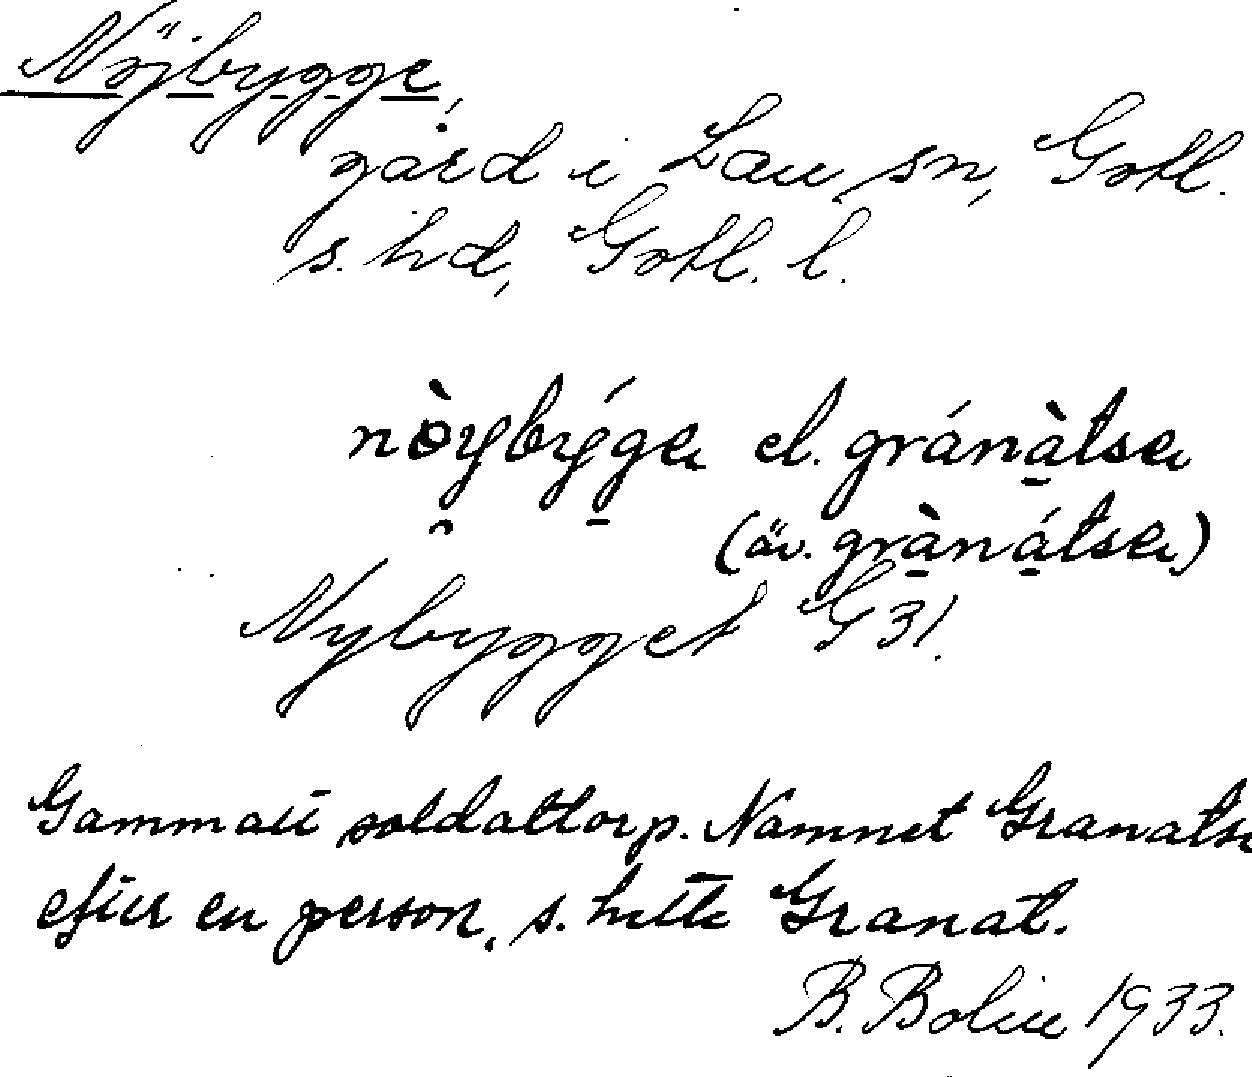 Nöjbygge,
gård i Lau sn, Gotl.
s. hd, Gotl. l.
nòybýga el. gránàtsa
(äv. grànátsa)
Nybygget G 31.
Gammalt soldattorp. Namnet Granatsa
efter en person, s. hette Granat.
B. Bolin 1933.